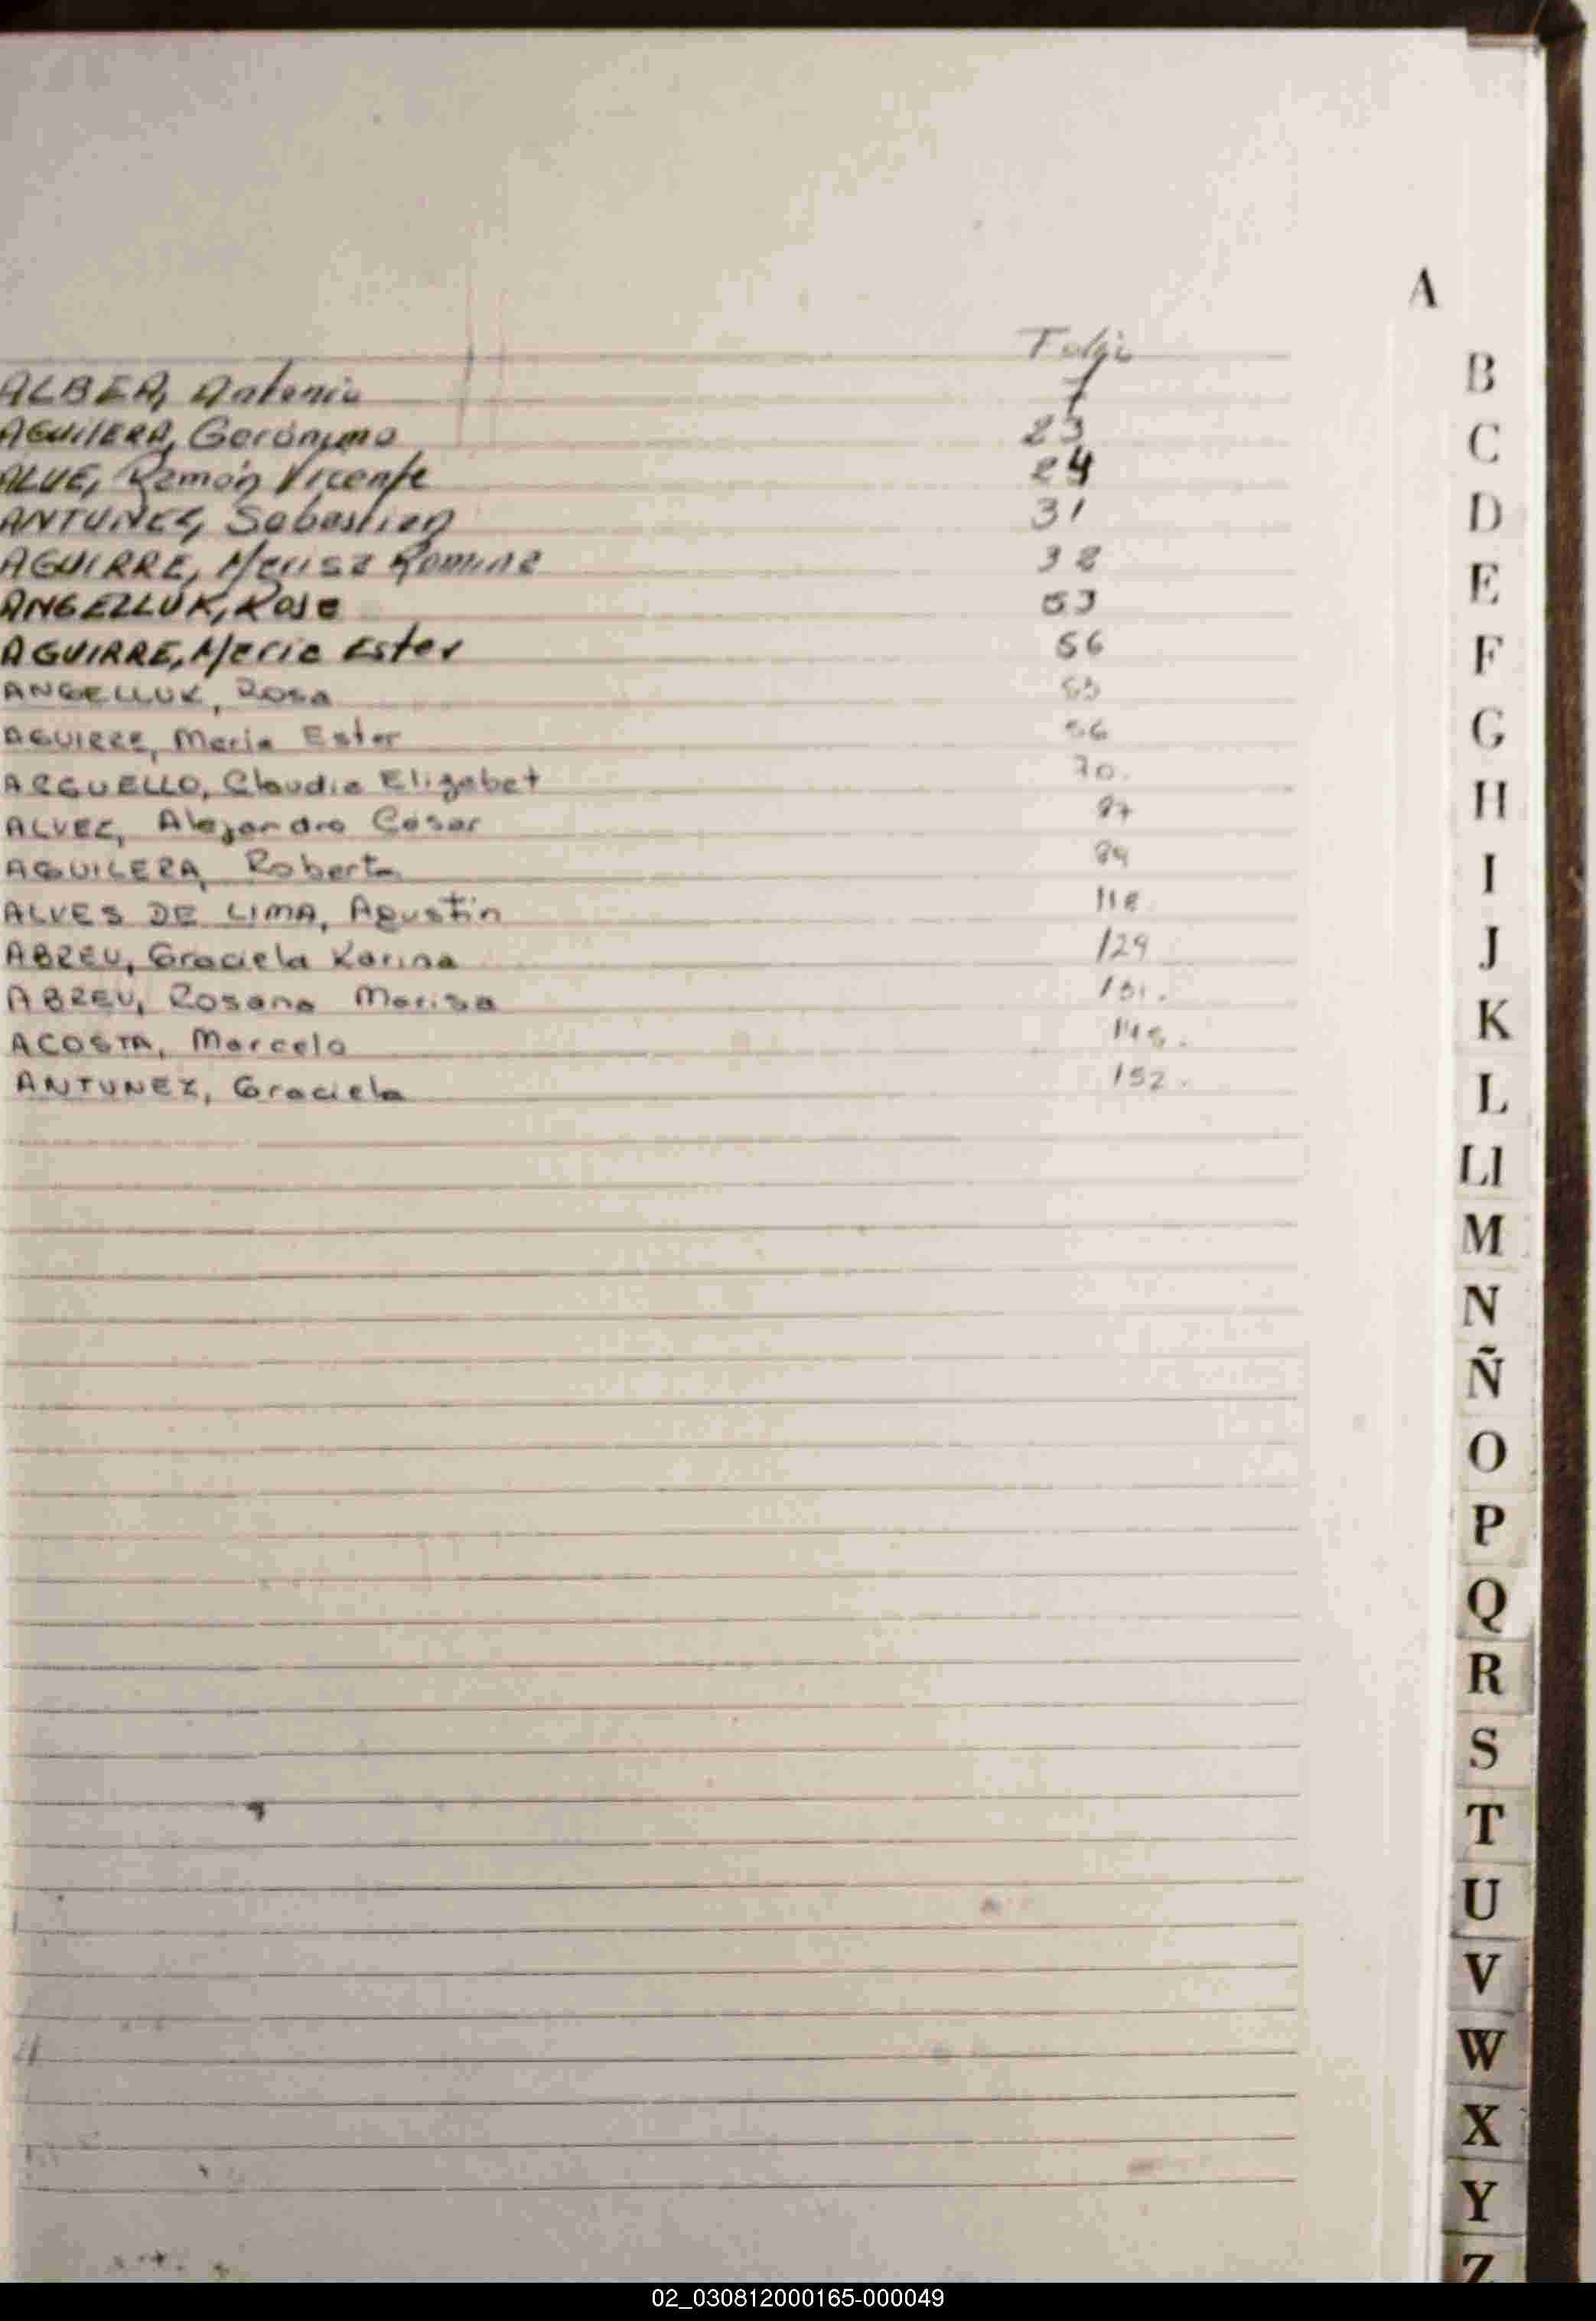 A
Folio
ALBEA, Antonio 7
AGUILERA, Gerónimo 23
ALVE, Ramón Vicente 24
ANTUNES, Sebastian 31
AGUIRRE, Marisa Romina 38
ANGELLUK, Rosa 53
AGUIRRE, Maria Ester 56
ANGELLUK, Rosa 53
AGUIRRE, Maria Ester 56
ARGUELLO, Claudia Elizabet 70.
ALVEZ, Alejandro Cesar
AGUILERA, Roberto
ALVES DE LIMA, Agustin 118
ABREU, Graciela Karina 129
ABREU, Rosana Marisa 131.
ACOSTA, Marcelo
ANTUNEZ, Graciela 152.
B
C
D
E
F
G
H
I
J
K
L
Ll
M
N
Ñ
O
P
Q
R
S
T
U
V
W
X
Y
Z
02_030812000165-000049